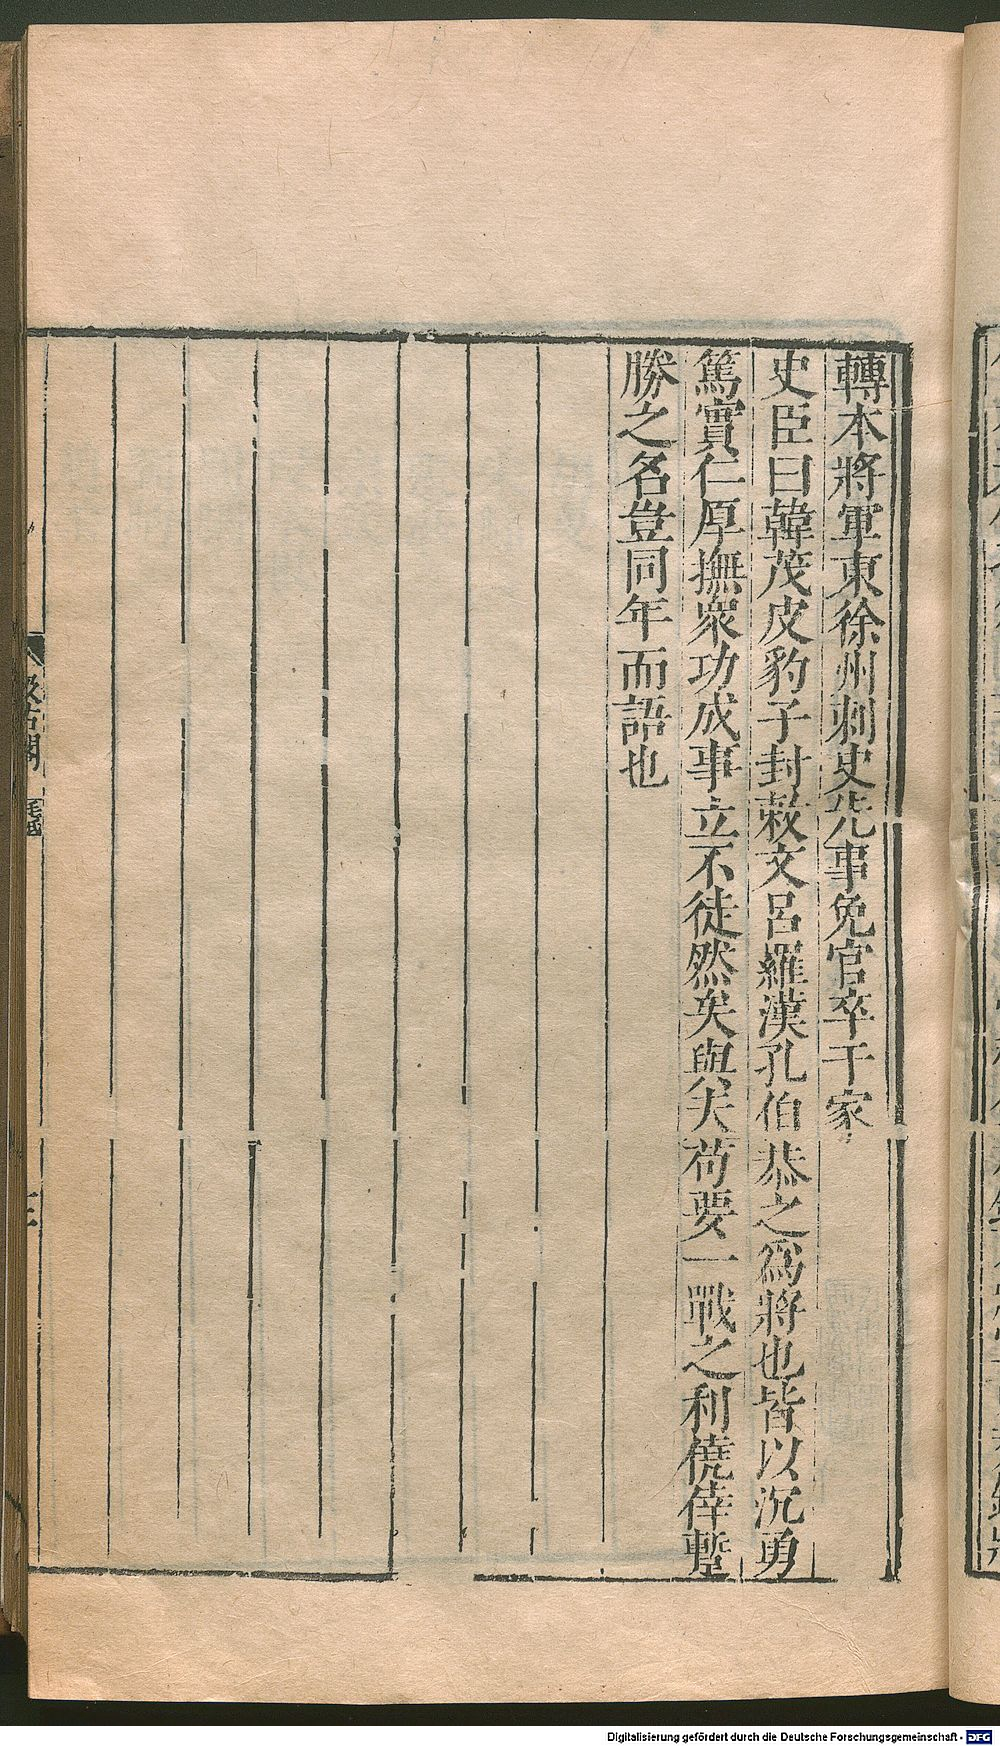 轉本將軍東徐州刺史先事免官卒于家
史臣曰韓茂皮豹子封敕文呂羅漢孔伯恭之為將也皆以沉勇
篤實仁厚撫衆功成事立不徒然矣與夫苟要一戰之利僥倖蹔
勝之名豈同年而語也
汲古閣
Digitalisierung gefördert durch die Deutsche Forschungsgemeinschaft - DFG